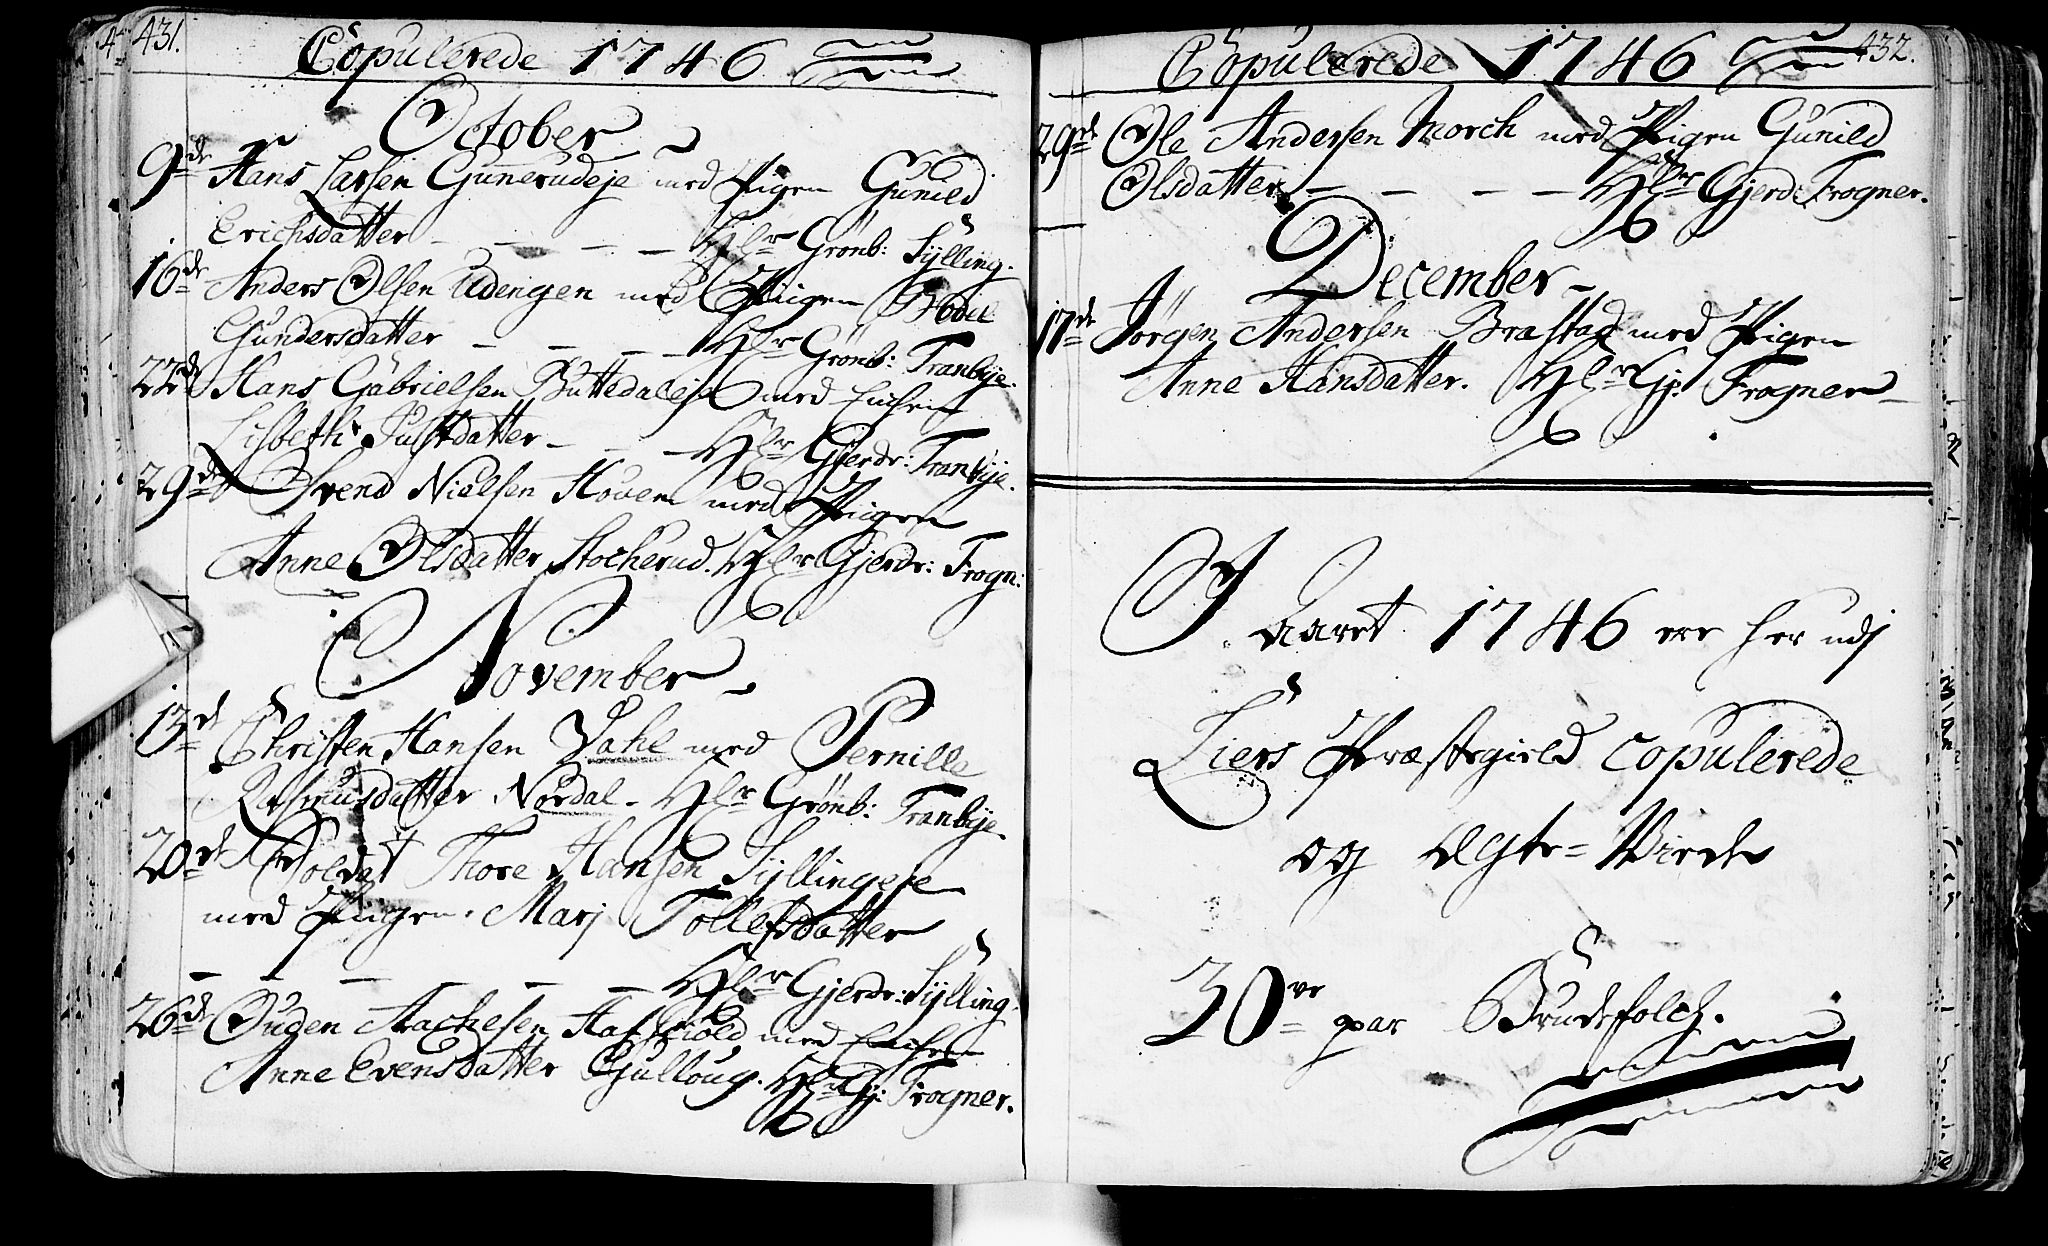 431.
Copulerede 1746
October
9de Hans Larsen Gunerudeje med Pigen Gunild
Erichsdatter - - - - Hlr Grönb: Sylling.
16de Anders Olsen Udengen med Piigen Bodil
Gundersdatter - - - - Hlr Grönb: Tranbye.
22de Hans Gabrielsen Buttedaleje med Enchen
Lisbeth Justdatter - - - Hlr Gjerdr: Tranbye.
29de Svend Nielsen Hoven med Piigen
Anne Olsdatter Stocherud. Hlr Gjerdr: Frogn:
November
13de Christen Hansen Dahl med Pernille
Rasmusdatter Nordal - Hlr Grönb: Tranbye.
20de Soldat Thore Hansen Syllingeje
med Piigen Marj Tollefsdatter
- - - - - - Hlr Gjerdr: Sylling.
26de Ouden Aachesen med Enchen
Anne Evensdatter Gjulloug. Hlr Gj: Frogner.
432.
Copulerede 1746
29de Ole Andersen Morch med Pigen Gunild
Olsdatter - - - - Hlr Gjerd: Frogner.
December
17de Jörgen Andersen Brastad med Pigen
Anne Hansdatter. Hlr Gj: Frogner
I Aaret 1746 ere her udj
Liers Præstegield copulerede
og Ægte-Virde
30ve par Brudefolch.